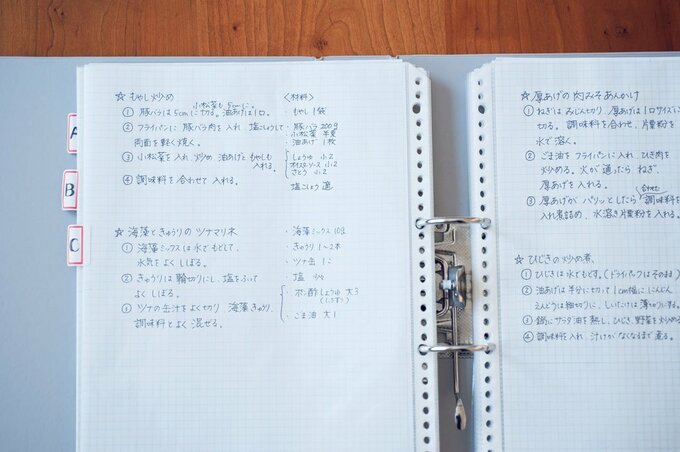 A
B
C
☆ もやし炒め
〈材料〉
小松菜も5cmに。
① 豚バラは5cmに切る。油あげは1口。
・もやし 1袋
② フライパンに 豚バラ肉を入れ 塩こしょうして
両面を軽く焼く。
・豚バラ 200g
・小松菜 半束
・油あげ 1枚
③ 小松菜を入れ、炒め 油あげと もやしも
入れる。
しょうゆ 小2
オイスターソース 小2
さとう 小2
④ 調味料を合わせて 入れる。
塩こしょう 適
☆ 海藻ときゅうりの ツナマリネ
① 海藻ミックスは水でもどして、
水気をよくしぼる。
② きゅうりは 輪切りにし、塩をふって
よくしぼる。
③ ツナの缶汁をよく切り 海藻 きゅうり、
調味料とよく 混ぜる。
・海藻ミックス 10g
・きゅうり 1〜2本
・ツナ缶 1コ
・塩 少々
・ポン酢しょうゆ 大3
・ごま油 大1
☆ 厚あげの 肉みそあんかけ
① ねぎは みじん切り、厚あげは 1口サイズに
切る。調味料を合わせ、片栗粉を
水で溶く。
② ごま油を フライパンに入れ、ひき肉を
炒める。火が通ったら ねぎ、
厚あげを入れる。
③ 厚あげが パリッとしたら 合わせ調味料を
入れ煮詰め、水溶き片栗粉を入れる。
☆ ひじきの炒め煮
① ひじきは 水でもどす。(ドライパックは そのまま)
② 油あげは 半分に切って 1cm幅に にんじん
えんどうは 細切りに、しいたけは 薄切りにする。
③ 鍋にサラダ油を 熱し、ひじき、野菜を 炒め
④ 調味料を入れ、汁けがなくなるまで 煮る。